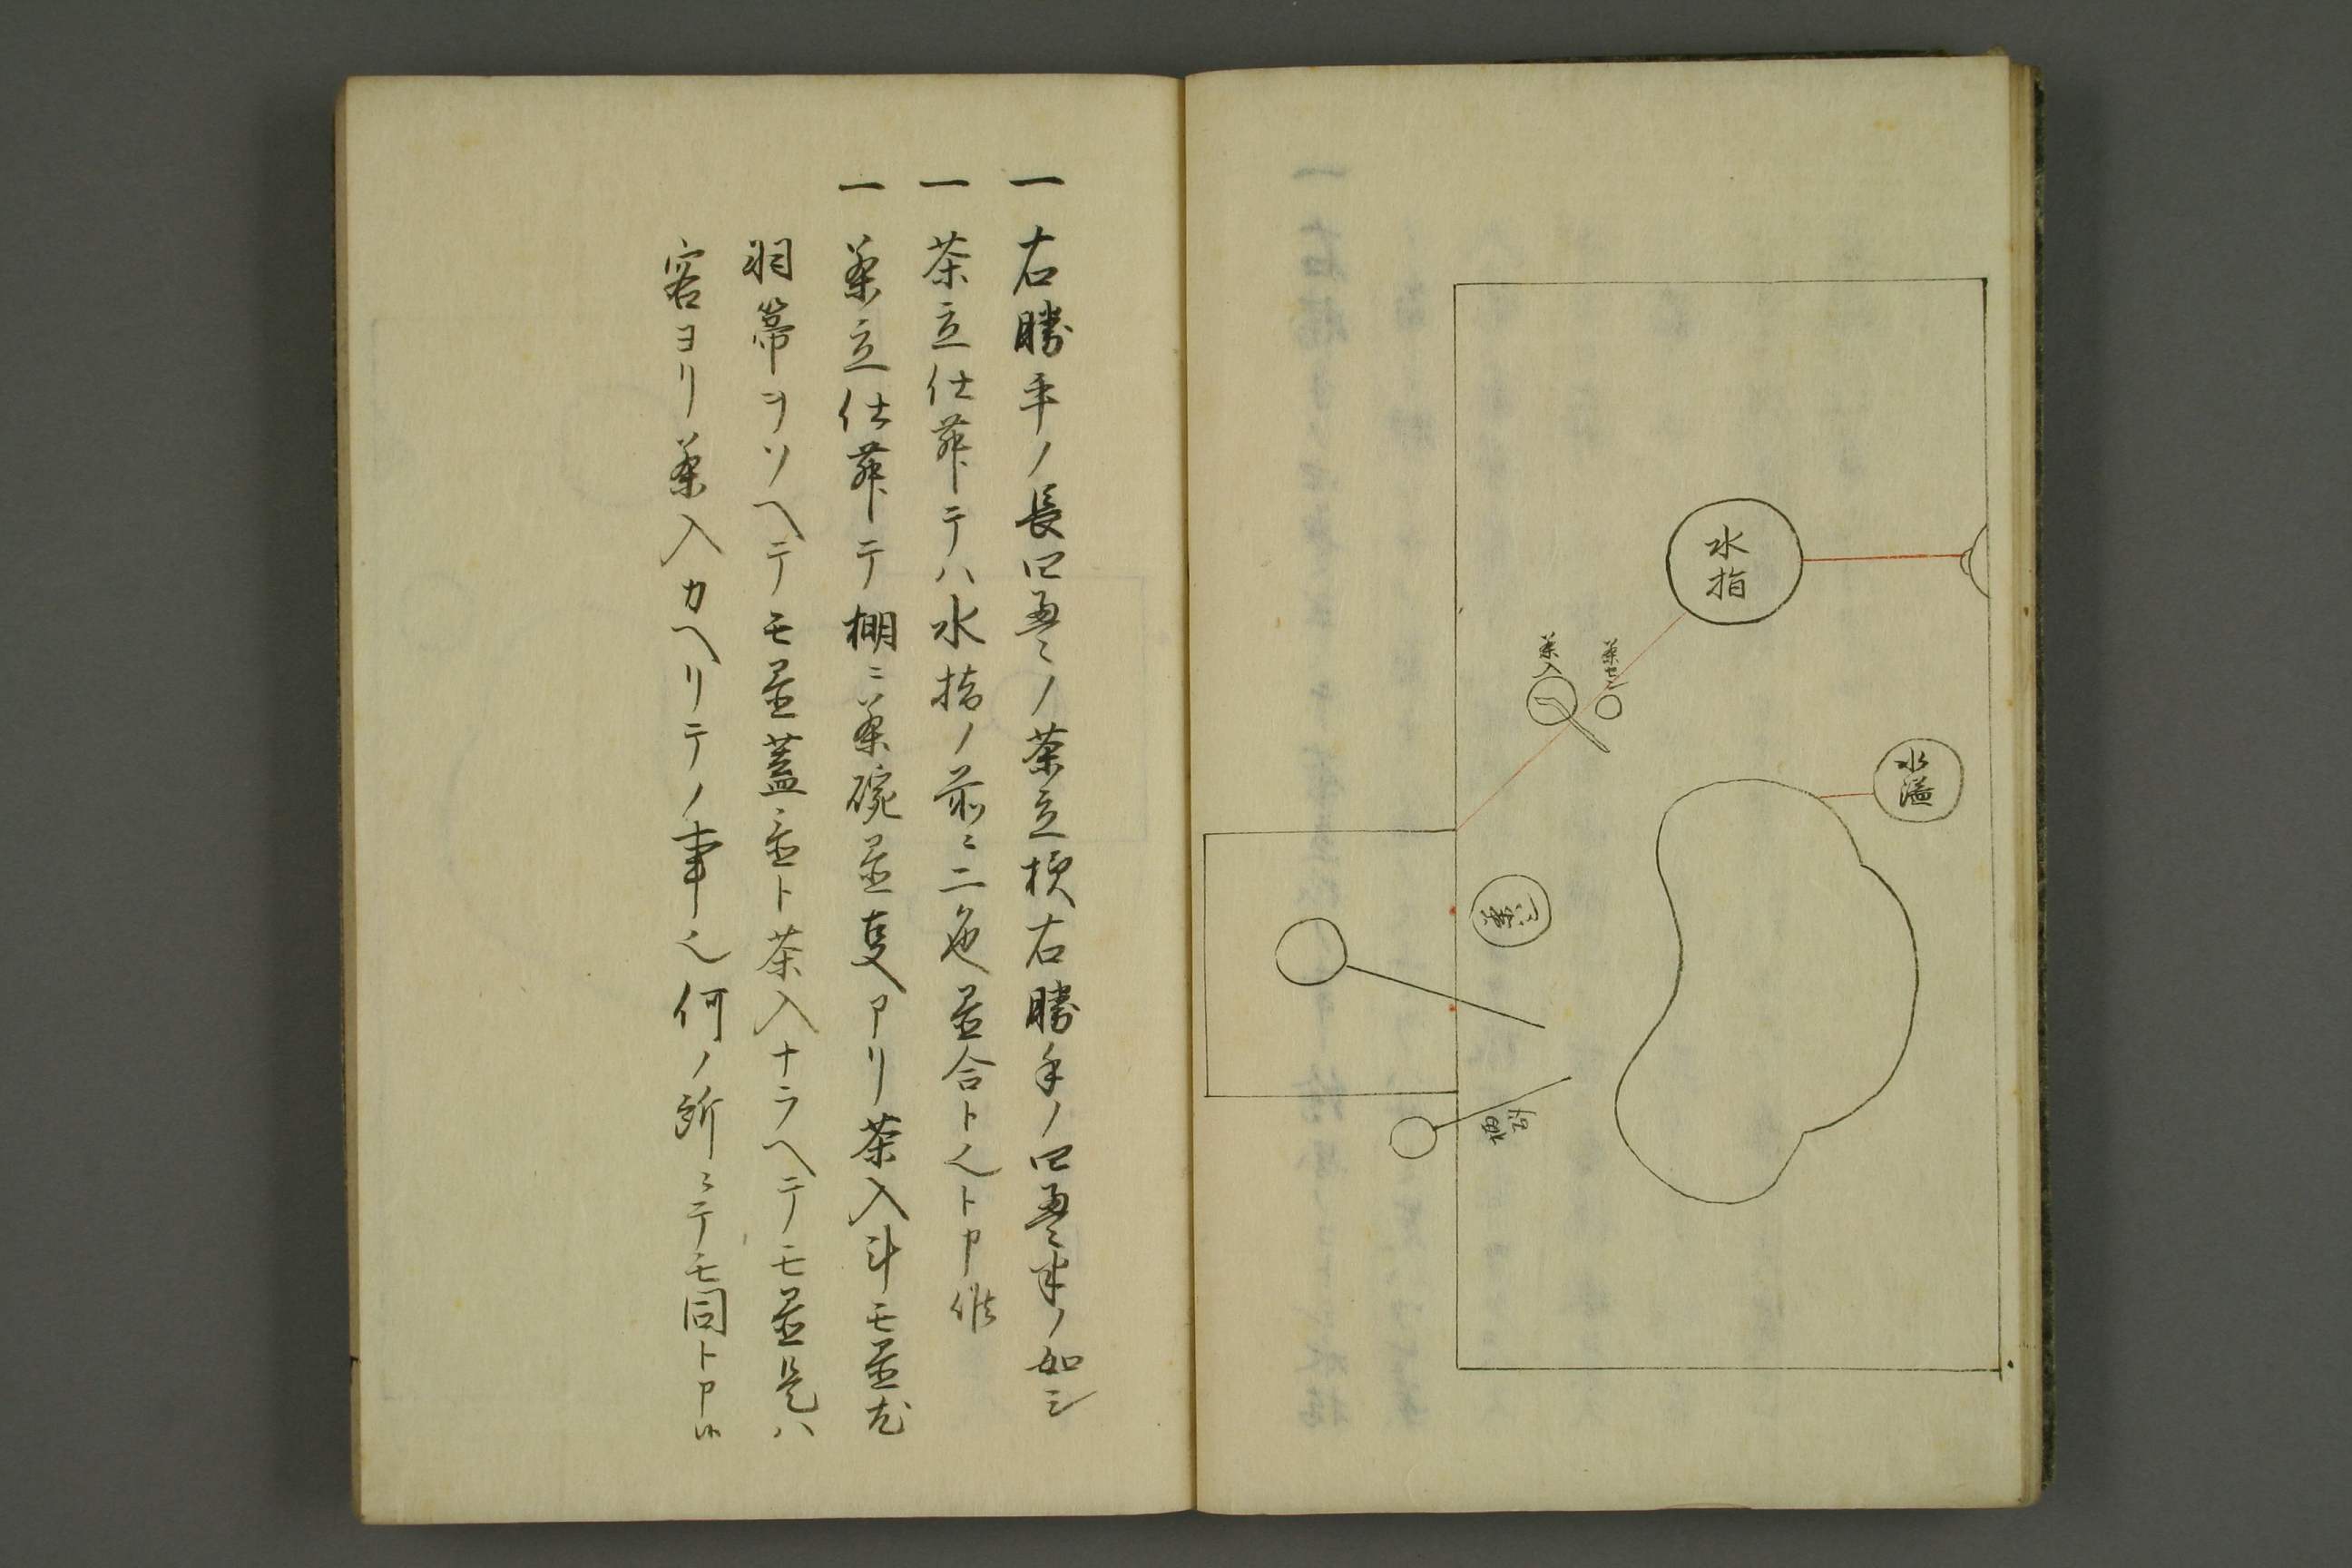 水指
茶入
茶セン
水溢
茶
一 右勝手ノ長四畳ノ茶立様右勝手ノ四畳半ノ如シ
一 茶立仕廻テハ水指ノ前ニ二色置合トト申候
一 茶立仕廻テ棚ニ茶碗置事アリ茶入斗モ置又
羽箒ヲソヘテモ置蓋置ト茶入ナラヘテモ置是ハ
客ヨリ茶入カヘリテノ事也何ノ所ニテモ同ト申候